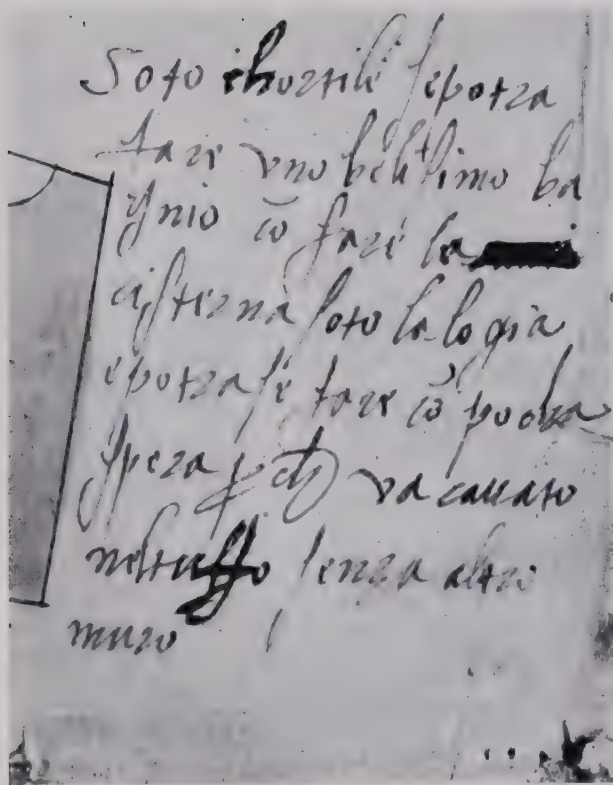 Soto el chortile sepotra
fare vno belissimo ba
gnio cō fare la
cisterna soto la logia
e potrasse fare cō pocha
spesa p ch va cauato
nel tuffo senza altro
muro